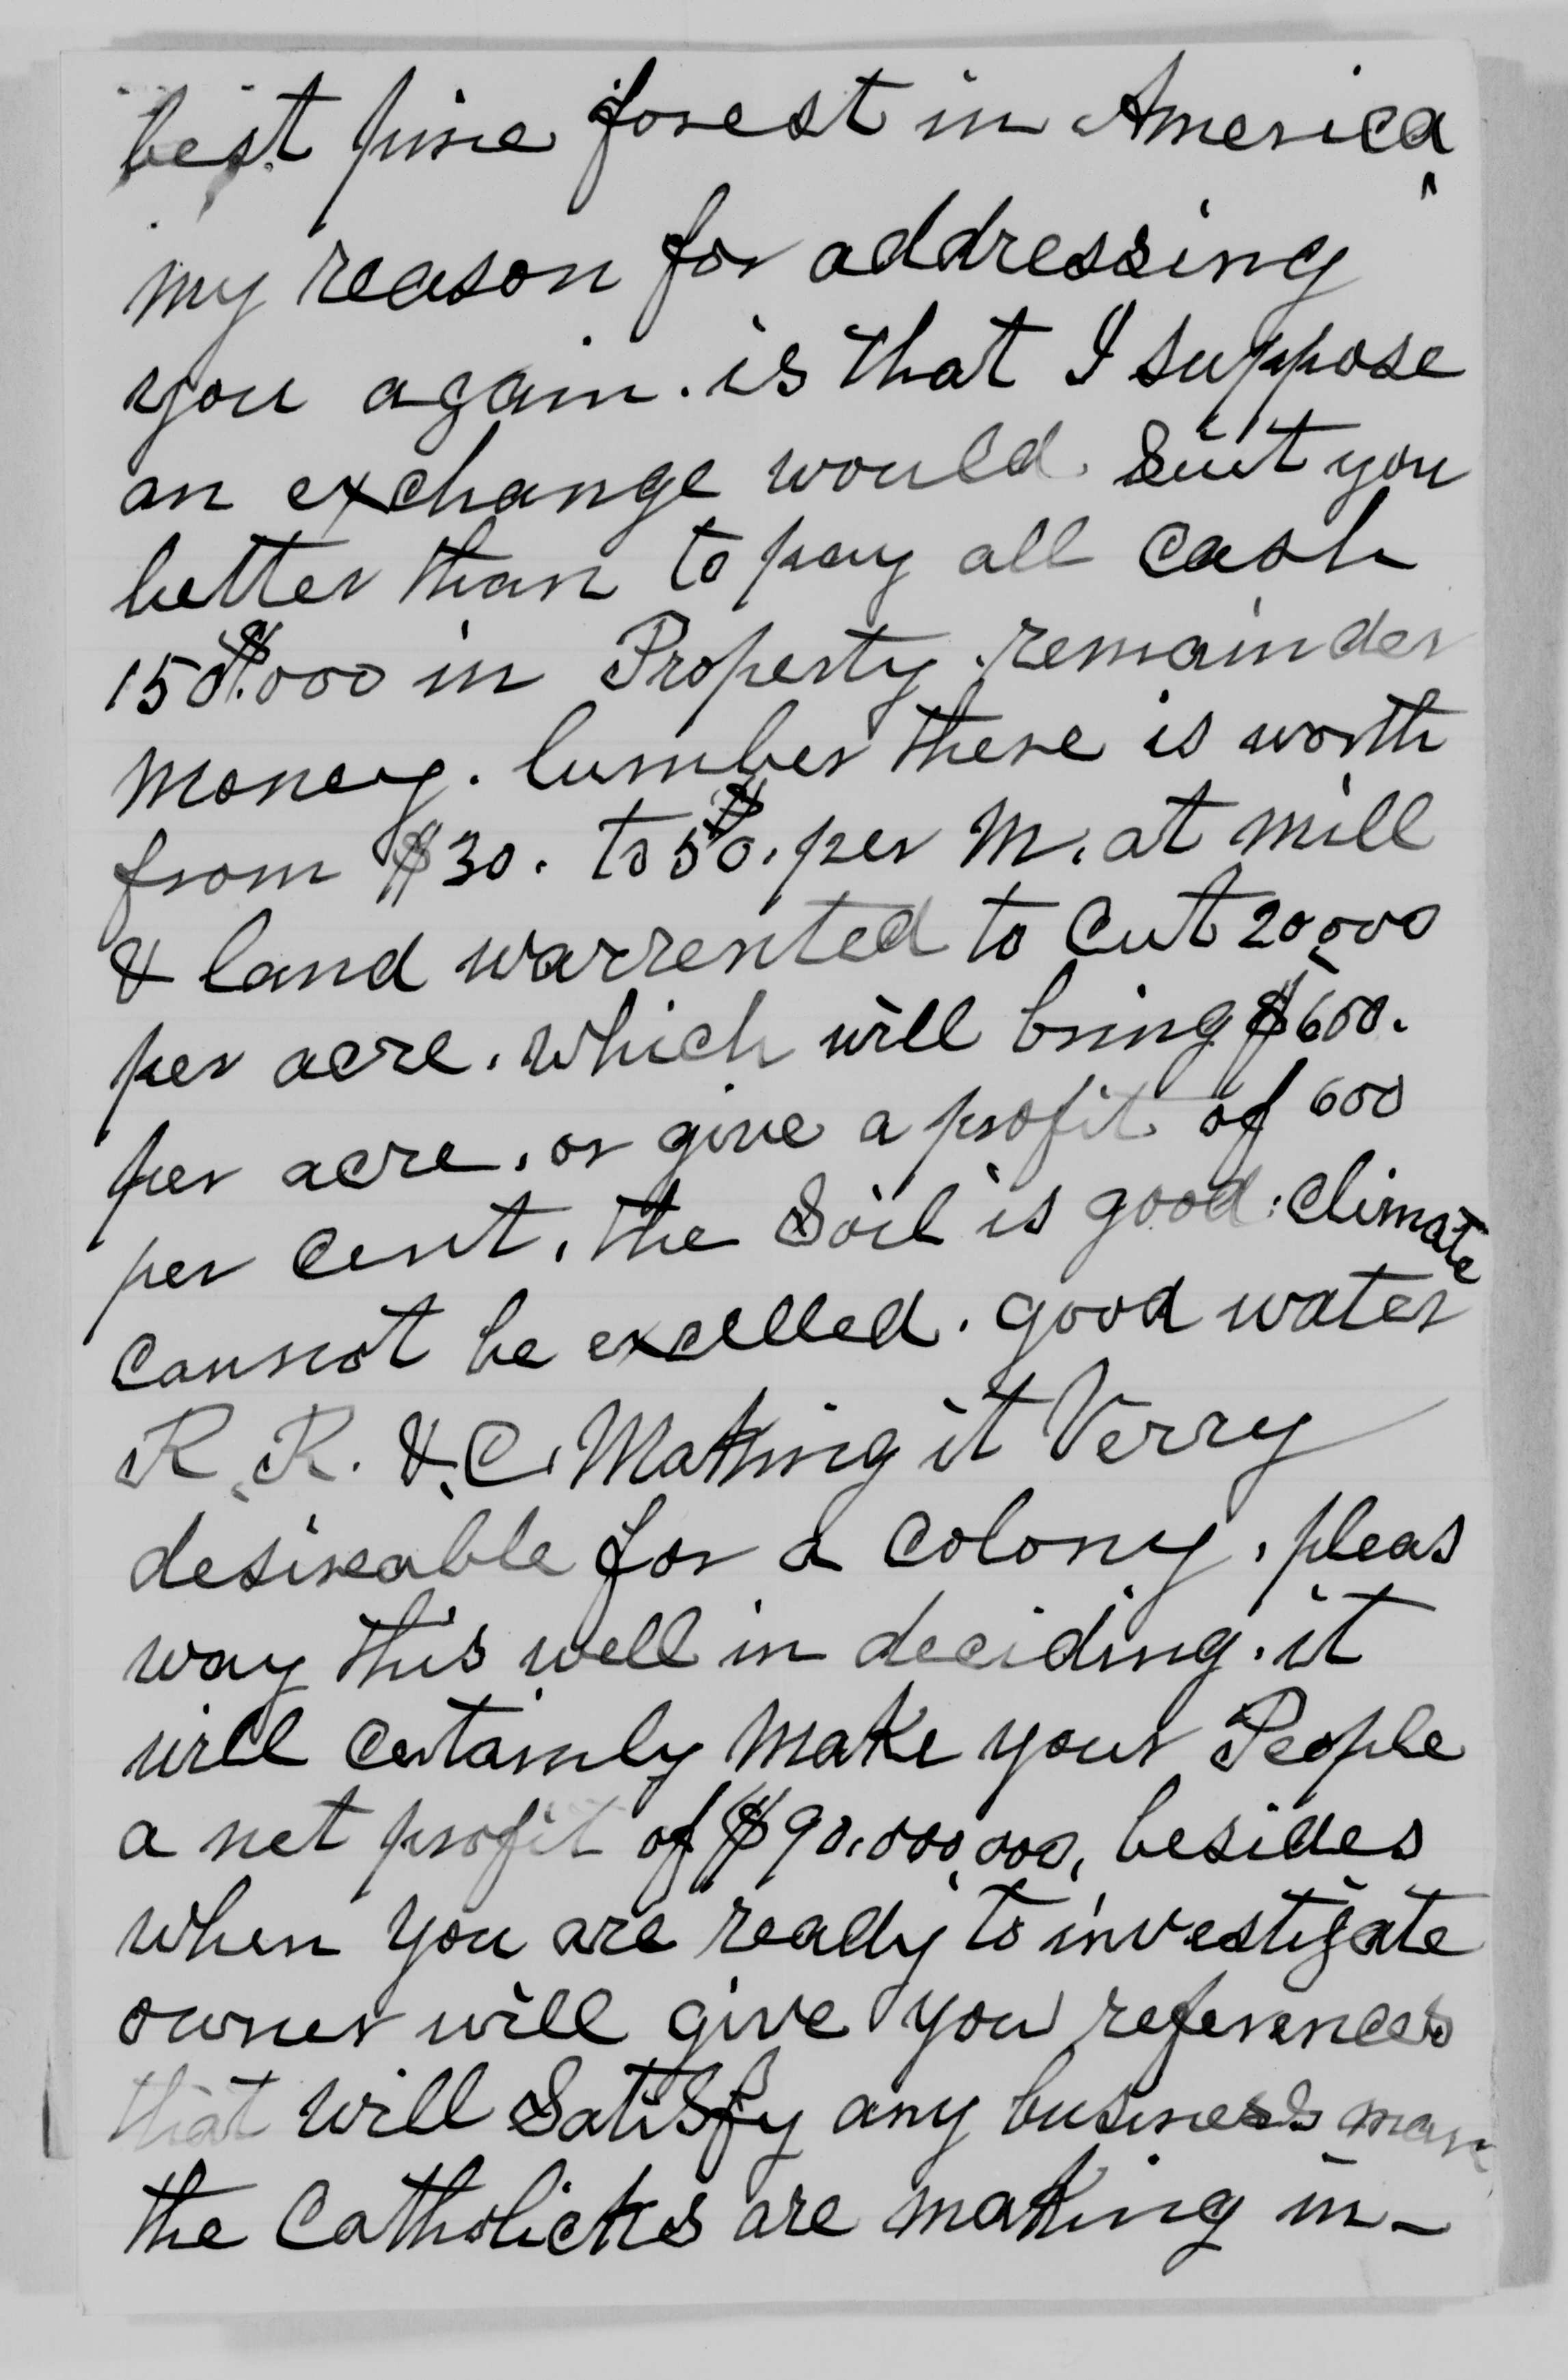 best pine forest in America,
my reason for addressing
you again. is that I suppose
an exchange would. Suit you
better than to pay all cash
150$.000 in Property. remainder
money. lumber there is worth
from $30. to 50$. per M. at mill
& land warrented to cut 20,000
per acre. which will bring $600.
per acre. or give a profit of 600
per cent. the Soil is good. climate
cannot be excelled. good water
R. R. & C. Making it Verry
desireable for a colony. pleas
way this well in deciding. it
will certainly make your People
a net profit of $90.000,000, besides
when you are ready to investigate
owner will give you references
that will Satisfy any business man
the Catholickes are making in-